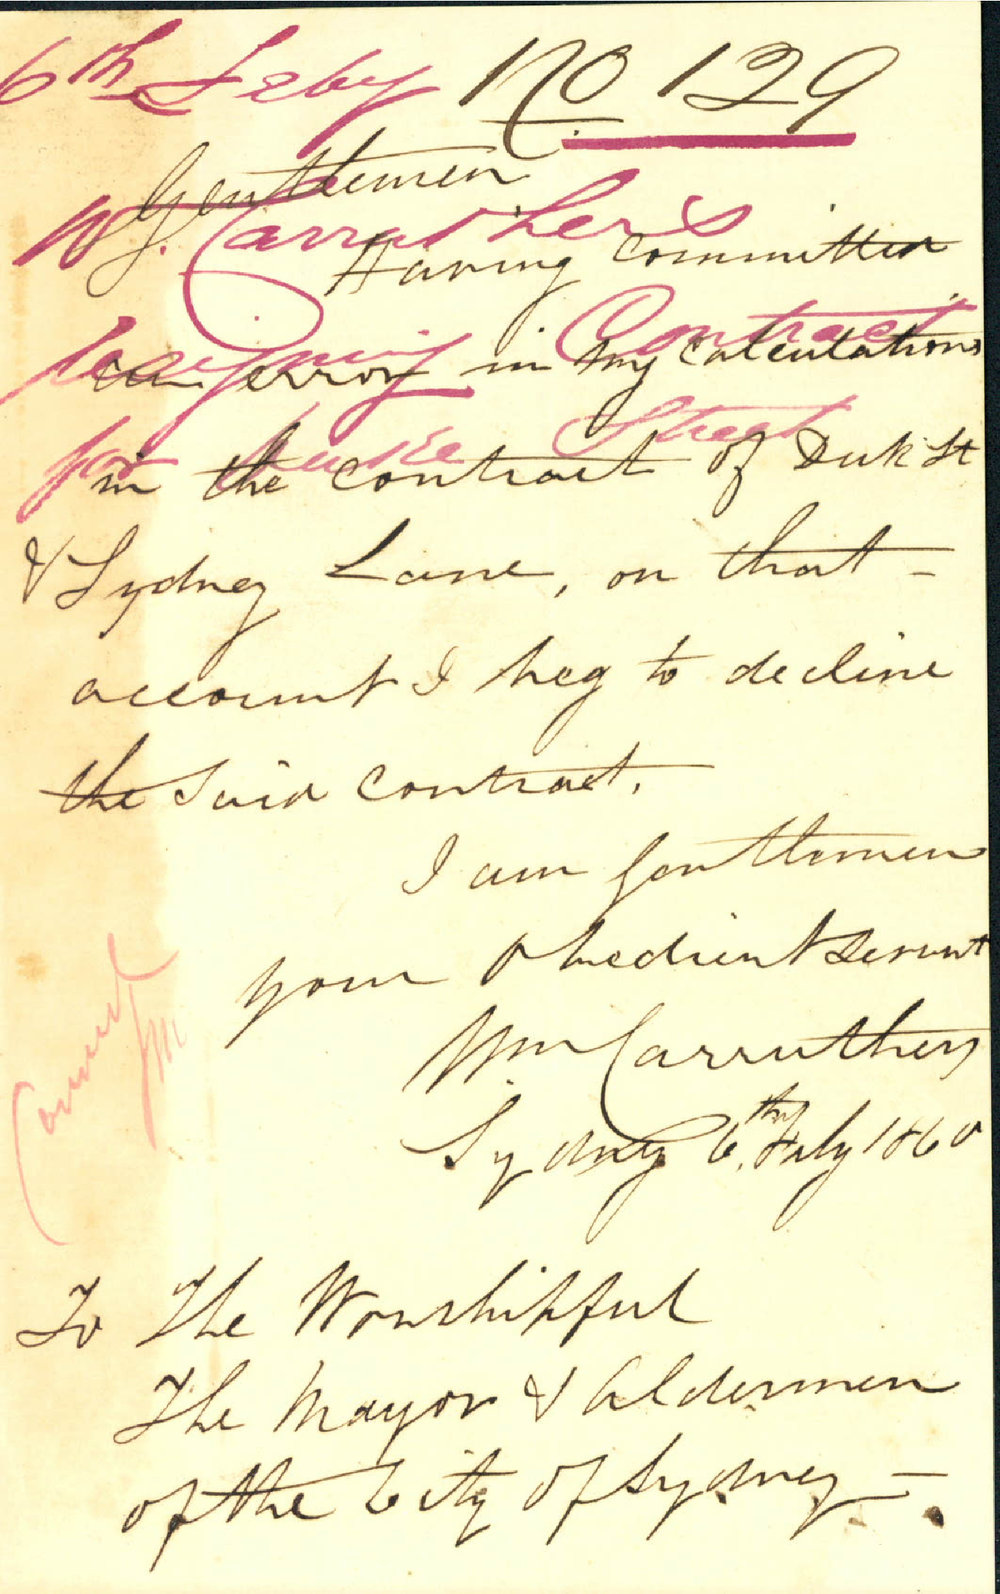 6th Feby No 129
Gentlemen
W. Carruther's
Having Committed
resigning Contract
an error in my Calculations
for Duke Street
in the Contract of Duk St
& Sydney Lane, on that -
account I beg to decline
the Said Contract.
I am Gentlemen
your Obedient Servant
Wm Carruthers
Sydney 6th Feby 1860
To The Worshipful
The Mayor & Aldermen
of the City of Sydney -